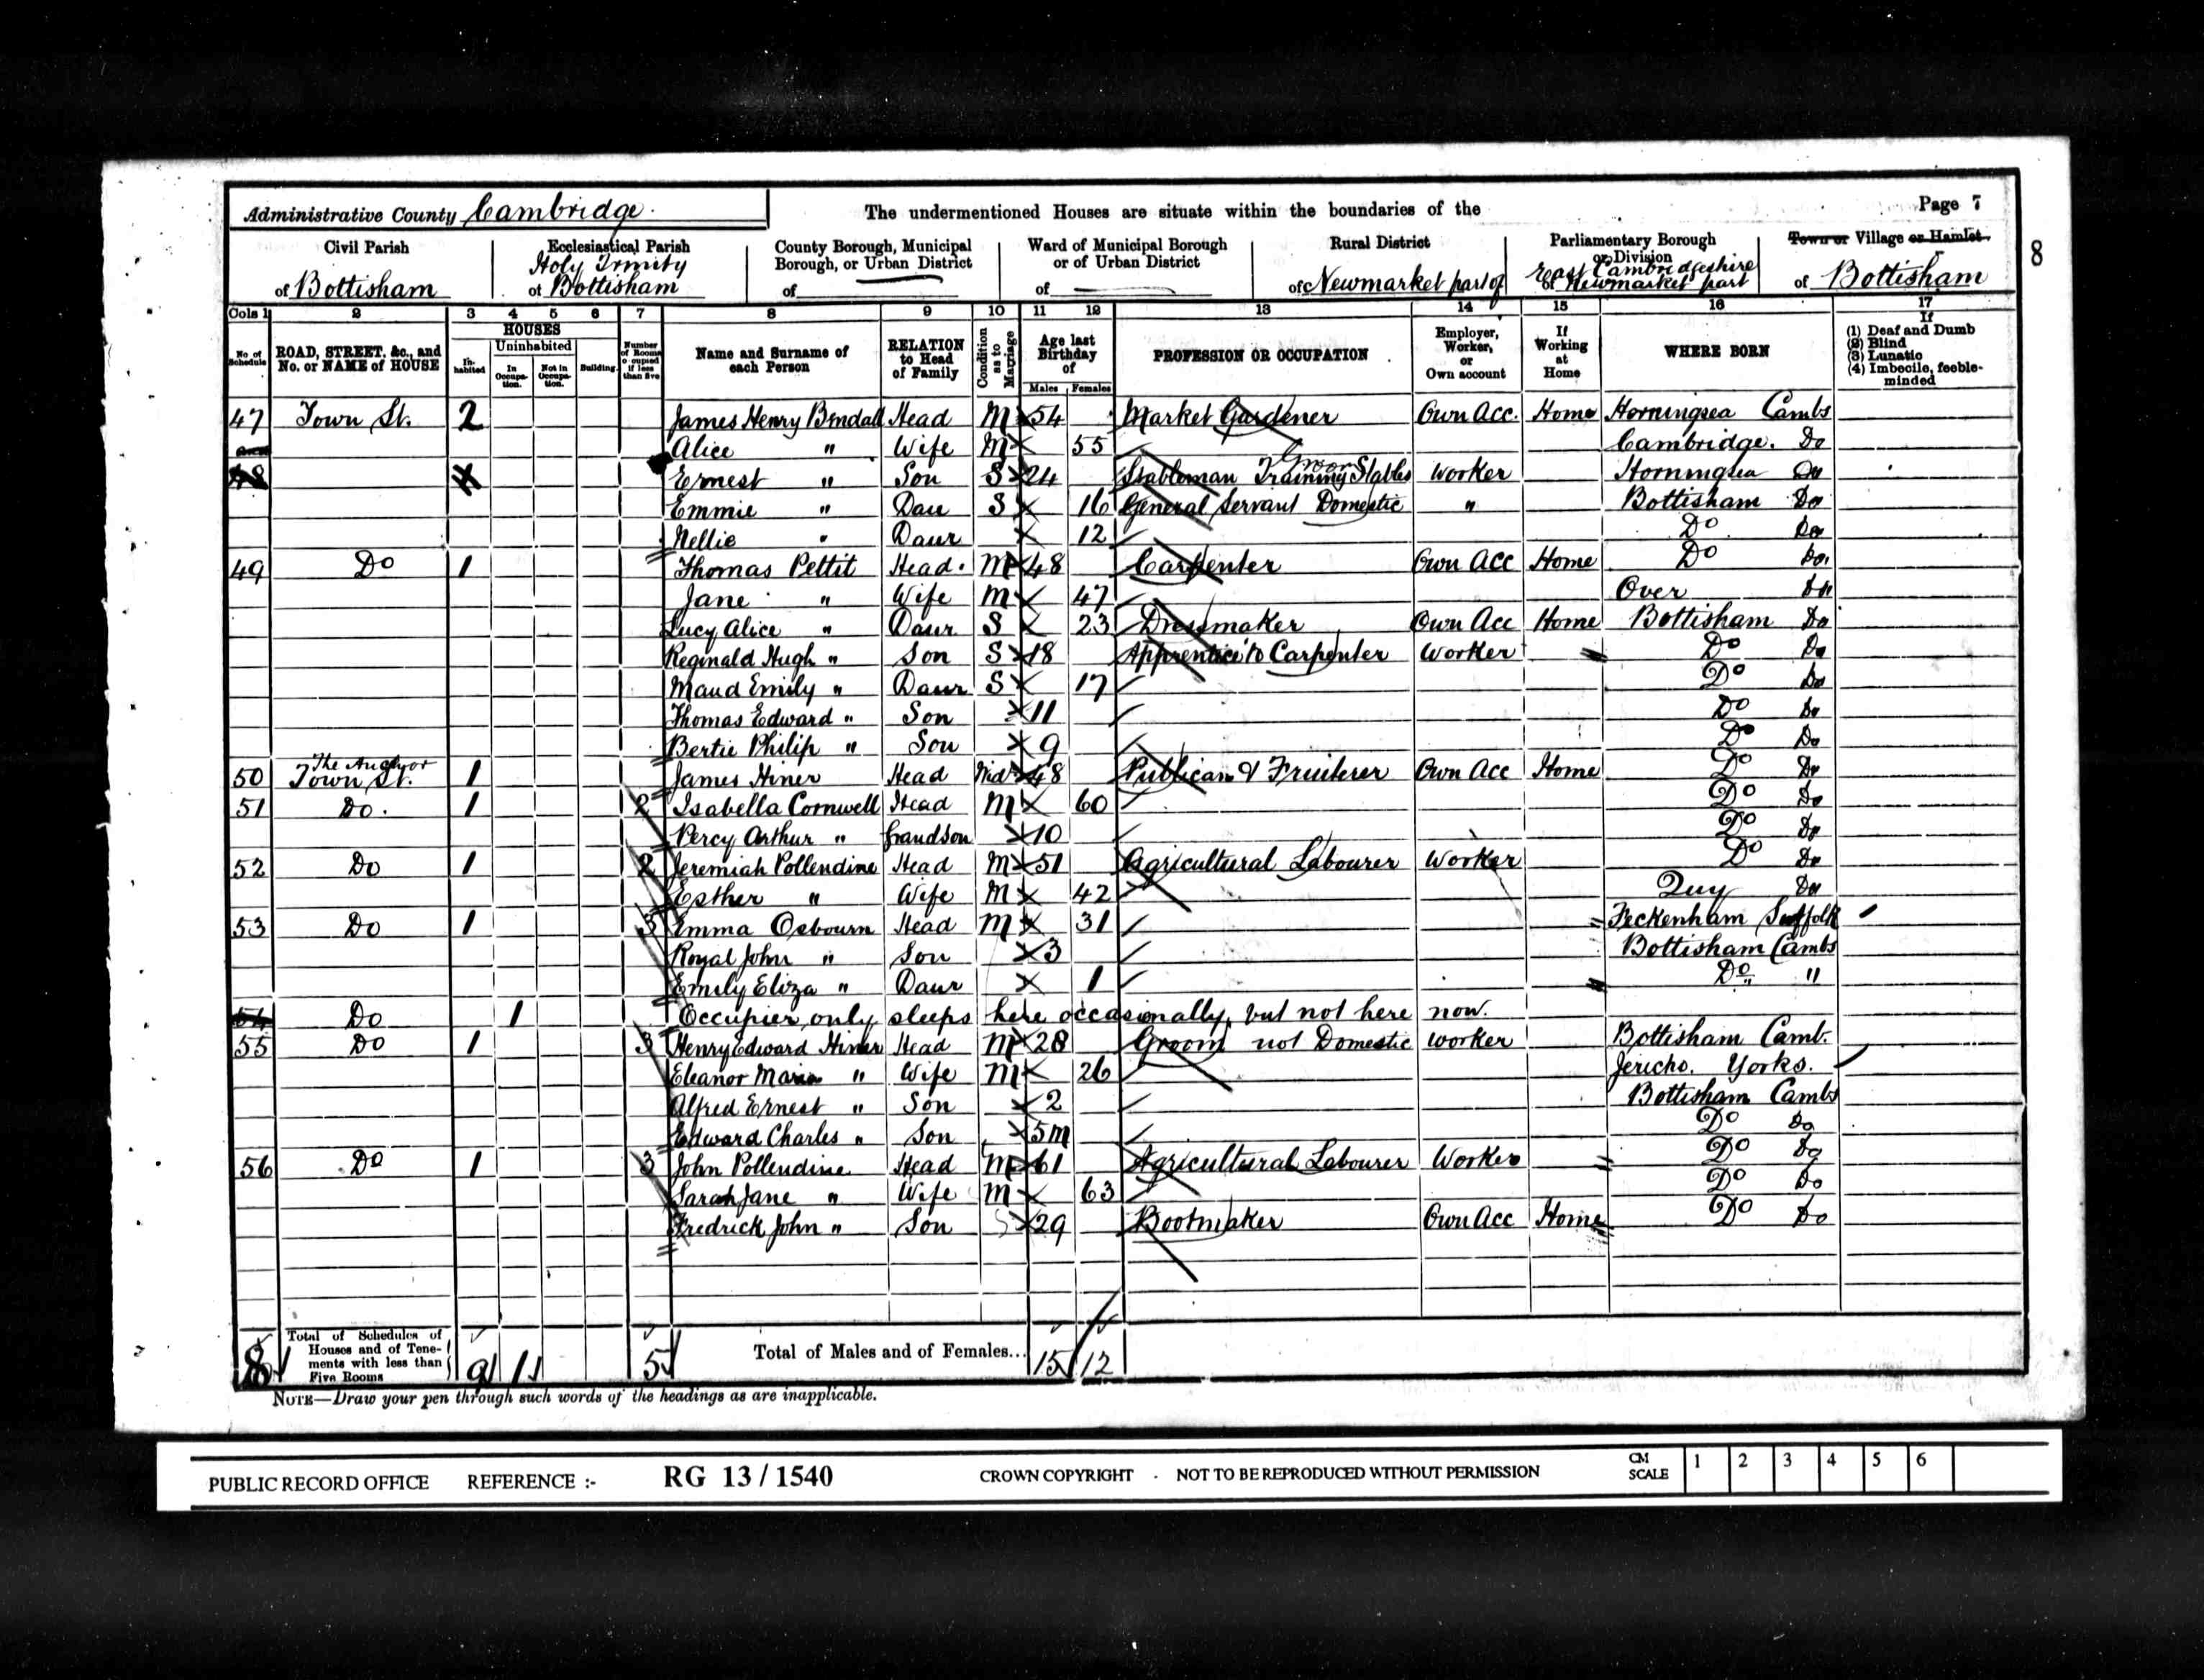 Administrative County Cambridge. The undermentioned Houses are situate within the boundaries of the Page 7
8
Civil Parish Ecclesiastical Parish County Borough, Municipal Borough, or Urban District Ward of Municipal Borough or of Urban District Rural District Parliamentary Borough or Division Town or Village or Hamlet
of Bottisham Holy Trinity of Bottisham of of of Newmarket part of East Cambridgeshire of Newmarket part of Bottisham
Cols 1 2 3 4 5 6 7 8 9 10 11 12 13 14 15 16 17
No of Schedule ROAD, STREET, &c., and No. or NAME of HOUSE HOUSES Inhabited Uninhabited In Occupation. Not in Occupation. Building. Number of Rooms occupied if less than five Name and Surname of each Person RELATION to Head of Family Condition as to Marriage Age last Birthday of Males Females PROFESSION OR OCCUPATION Employer, Worker, or Own account If Working at Home WHERE BORN If (1) Deaf and Dumb (2) Blind (3) Lunatic (4) Imbecile, feeble-minded
47 Town St. 2 James Henry Bendall Head M 54 Market Gardener Own Acc. Home Horningsea Cambs
and Alice " Wife M 55 Cambridge. Do
48 Ernest " Son S 24 Stableman Training Stables Groom Worker Horningsea Do
Emmie " Dau S 16 General Servant Domestic " Bottisham Do
Nellie " Daur 12 Do Do
49 Do 1 Thomas Pettit Head. M 48 Carpenter Own Acc Home Do Do
Jane " Wife M 47 Over Do
Lucy Alice " Daur S 23 Dressmaker Own Acc Home Bottisham Do
Reginald Hugh " Son S 18 Apprentice to Carpenter Worker Do Do
Maud Emily " Daur S 17 Do Do
Thomas Edward " Son 11 Do Do
Bertie Philip " Son 9 Do Do
50 The Anchor Town St. 1 James Hiner Head Wid 48 Publican & Fruiterer Own Acc Home Do Do
51 Do. 1 2 Isabella Cornwell Head M 60 Do Do
Percy Arthur " Grandson 10 Do Do
52 Do 1 2 Jeremiah Pollendine Head M 51 Agricultural Labourer Worker Do Do
Esther " Wife M 42 Quy Do
53 Do 1 3 Emma Osbourn Head M 31 Feckenham Suffolk
Royal John " Son 3 Bottisham Cambs
Emily Eliza " Daur 1 Do "
54 Do 1 Occupier only sleeps here occasionally, but not here now.
55 Do 1 3 Henry Edward Hiner Head M 28 Groom not Domestic worker Bottisham Camb.
Eleanor Maria " Wife M 26 Jericho. Yorks.
Alfred Ernest " Son 2 Bottisham Cambs
Edward Charles " Son 5m Do Do
56 Do 1 3 John Pollendine Head M 61 Agricultural Labourer Worker Do Do
Sarah Jane " Wife M 63 Do Do
Fredrick John " Son S 29 Bootmaker Own Acc Home Do Do
8 Total of Schedules of Houses and of Tenements with less than Five Rooms 9 1 5 Total of Males and of Females... 15 12
NOTE—Draw your pen through such words of the headings as are inapplicable.
PUBLIC RECORD OFFICE REFERENCE :- RG 13 / 1540 CROWN COPYRIGHT . NOT TO BE REPRODUCED WITHOUT PERMISSION CM SCALE 1 2 3 4 5 6